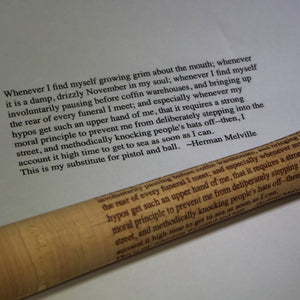 Whenever I find myself growing grim about the mouth; whenever
it is a damp, drizzly November in my soul; whenever I find myself
involuntarily pausing before coffin warehouses, and bringing up
the rear of every funeral I meet; and especially whenever my
hypos get such an upper hand of me, that it requires a strong
moral principle to prevent me from deliberately stepping into the
street, and methodically knocking people's hats off--then, I
account it high time to get to sea as soon as I can.
This is my substitute for pistol and ball. ~Herman Melville
involuntarily pausing before coffin warehouses, and bringing up
the rear of every funeral I meet; and especially whenever
hypos get such an upper hand of me, that it requires a strong
moral principle to prevent me from deliberately stepping into the
street, and methodically knocking people's hats off--then, I
account it high time to get to sea as soon as I can.
This is my substitute for